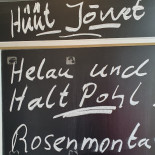 Hüüt Jövvet
Helau und
Halt Pohl!
Rosenmonta